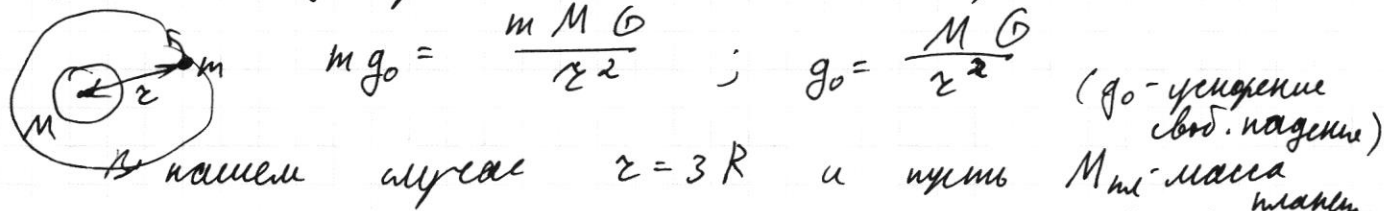 F
m
r
M
mg₀ = mMG/r² ; g₀ = MG/r² (g₀ - ускорение
своб. падения)
В нашем случае r = 3R и пусть Mпл - масса
планет